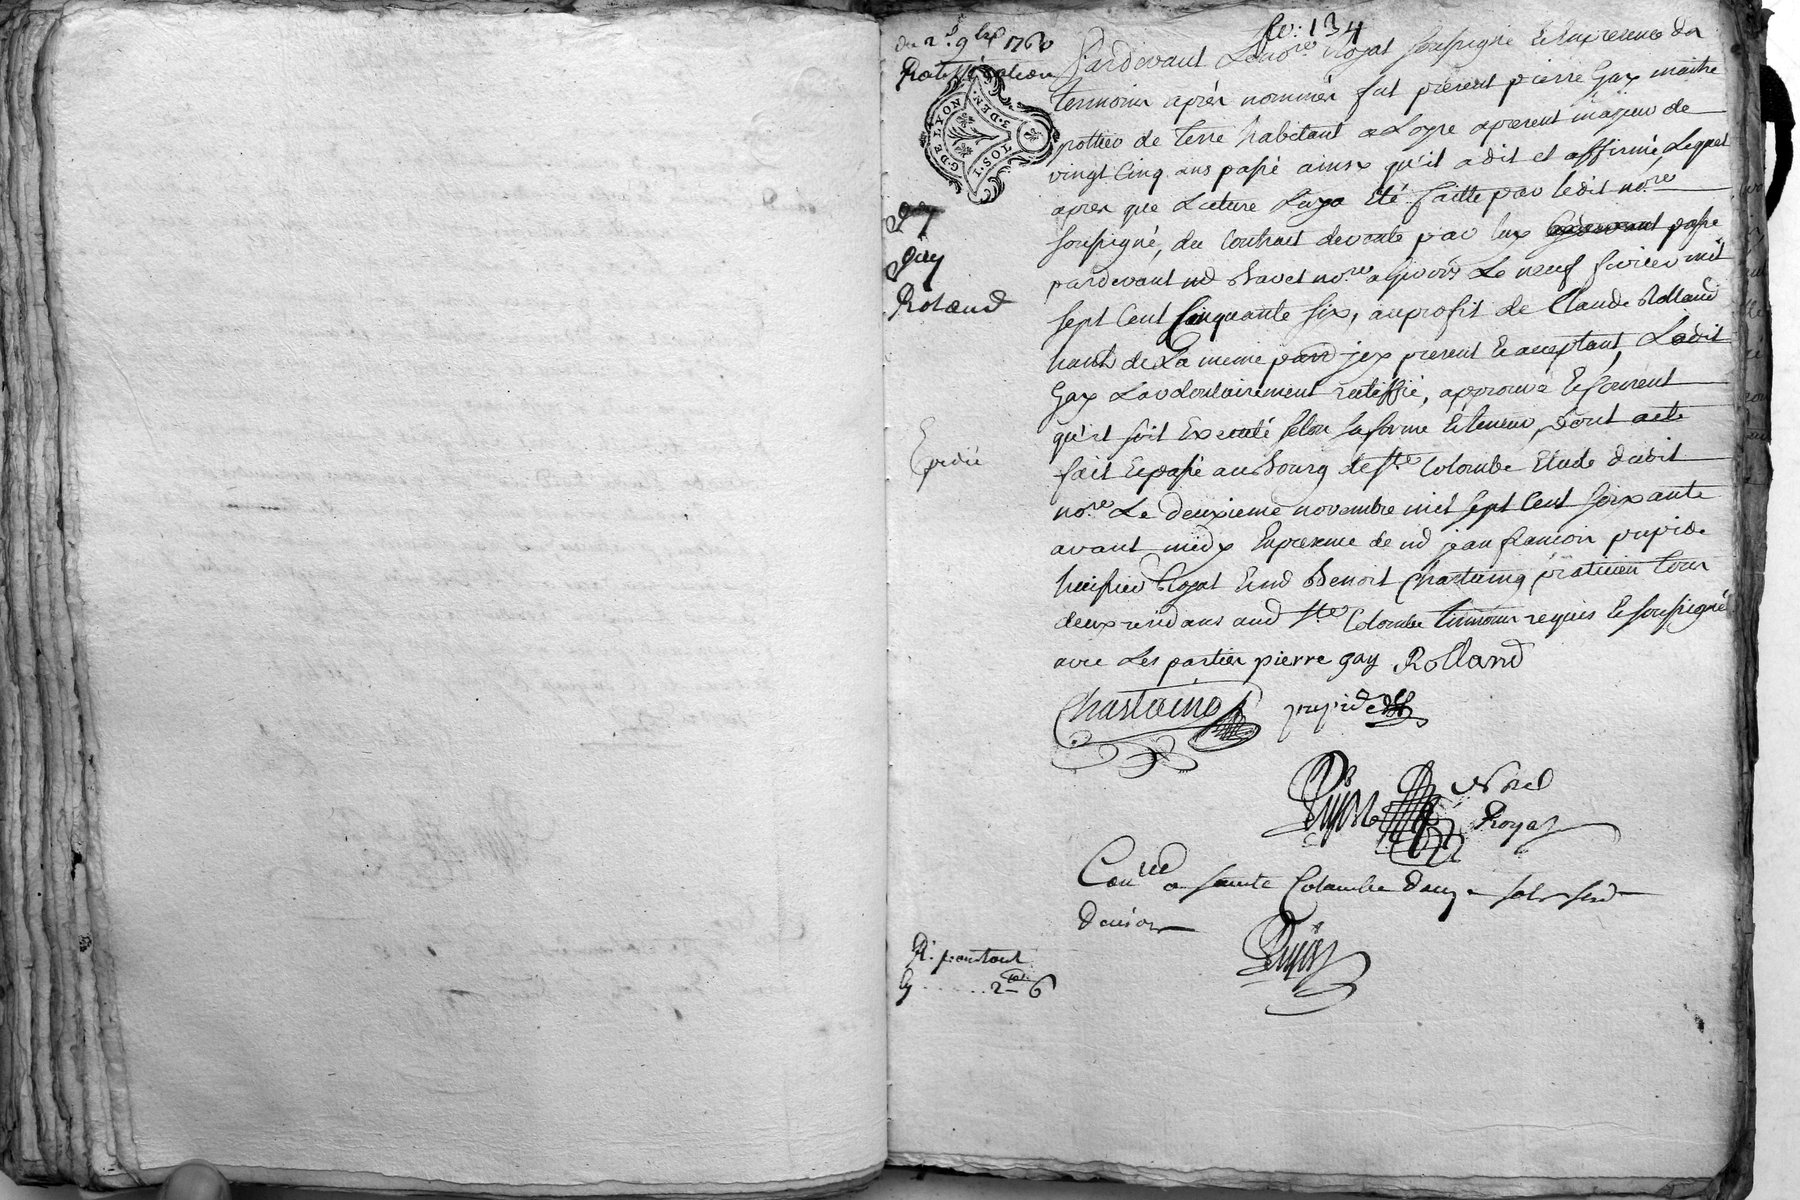 fo: 134
du 2.d 9bre 1760
Ratiffication
G. DE LYON
3. DEN.
T. SOL
Gay
Roland
Expedié
Pardevant Le nore Royal soussigné Et En presence des
temoins après nommés fut présent pierre Gay maitre
pottier de terre habitant a Loyre apresent majeur de
vingt Cinq ans passé ainsy qu'il a dit et affirmé Lequel
apres que Lecture Luy a Eté faitte par ledit nore
soussigné, du Contrat de vente par luy passé
pardevant md nore a Givors Le neuf fevrier mil
sept Cent Cinquante six, au profit de Claude Rolland
hant de La meme parr jcy present Et acceptant, Ledit
Gay La volontairement ratiffié, approuvé Et Consent
qu'il soit Executé selon sa forme Et teneur, Dont acte
fait Et passé au Bourg de Ste Colombe Etude dudit
nore Le deuxieme novembre mil sept Cent soixante
avant midy En presence de md jean francois pupide
huissier Royal Et md Benoit Chastaing praticien tous
deux residans aud Ste Colombe temoins requis Et soussignés
avec Les parties pierre gay Rolland
Chastaing pupide
Nore
Royal
Conlé a Sainte Colombe douze sols six
deniers
R. partout
2 6